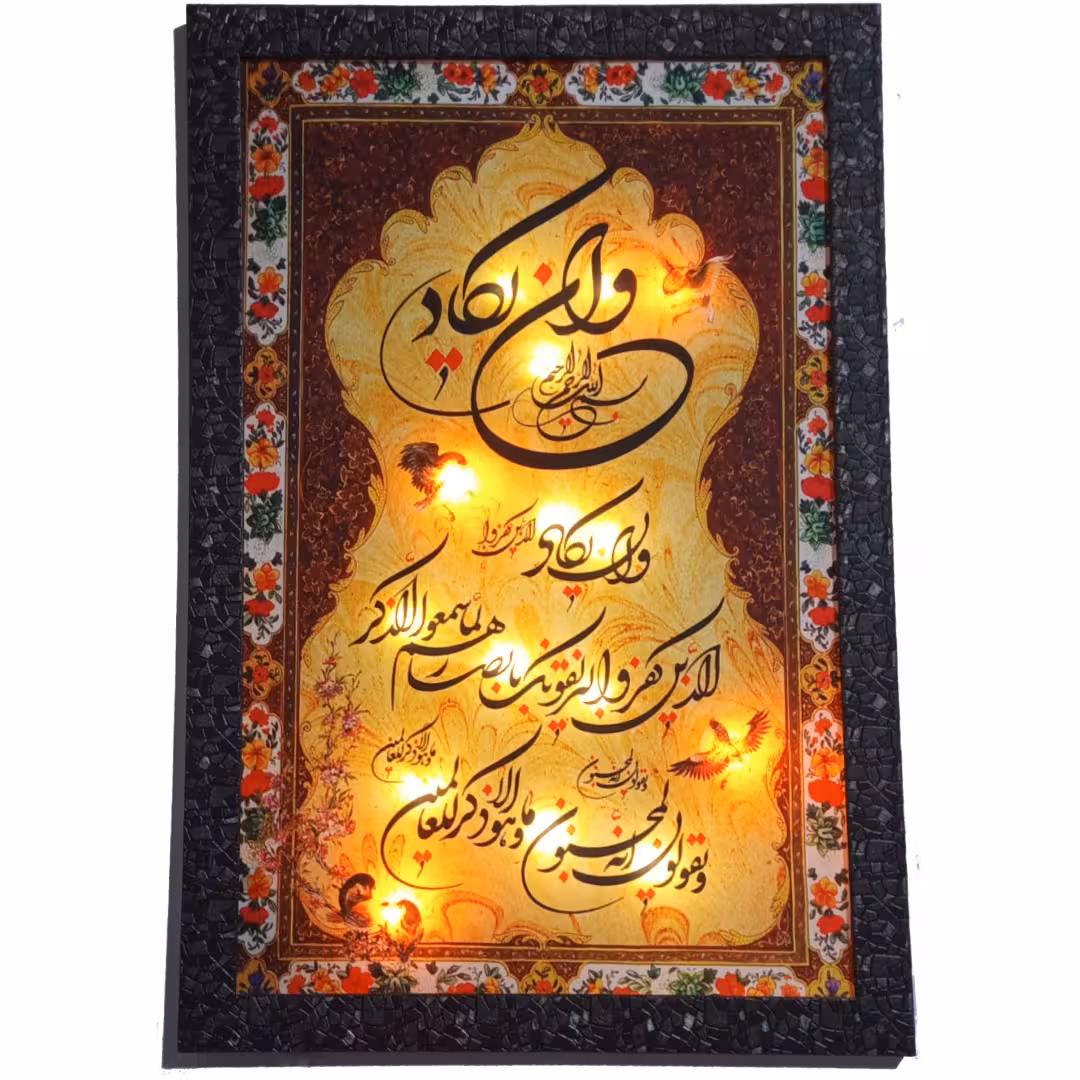 وان یکاد
بسم الله الرحمن الرحیم
وان یکاد الذین کفروا
الذین کفروا لیزلقونک بابصارهم لما سمعوا الذکر
ویقولون انه لمجنون وما هو الا ذکر للعالمین
ویقولون انه لمجنون وما هو الا ذکر للعالمین